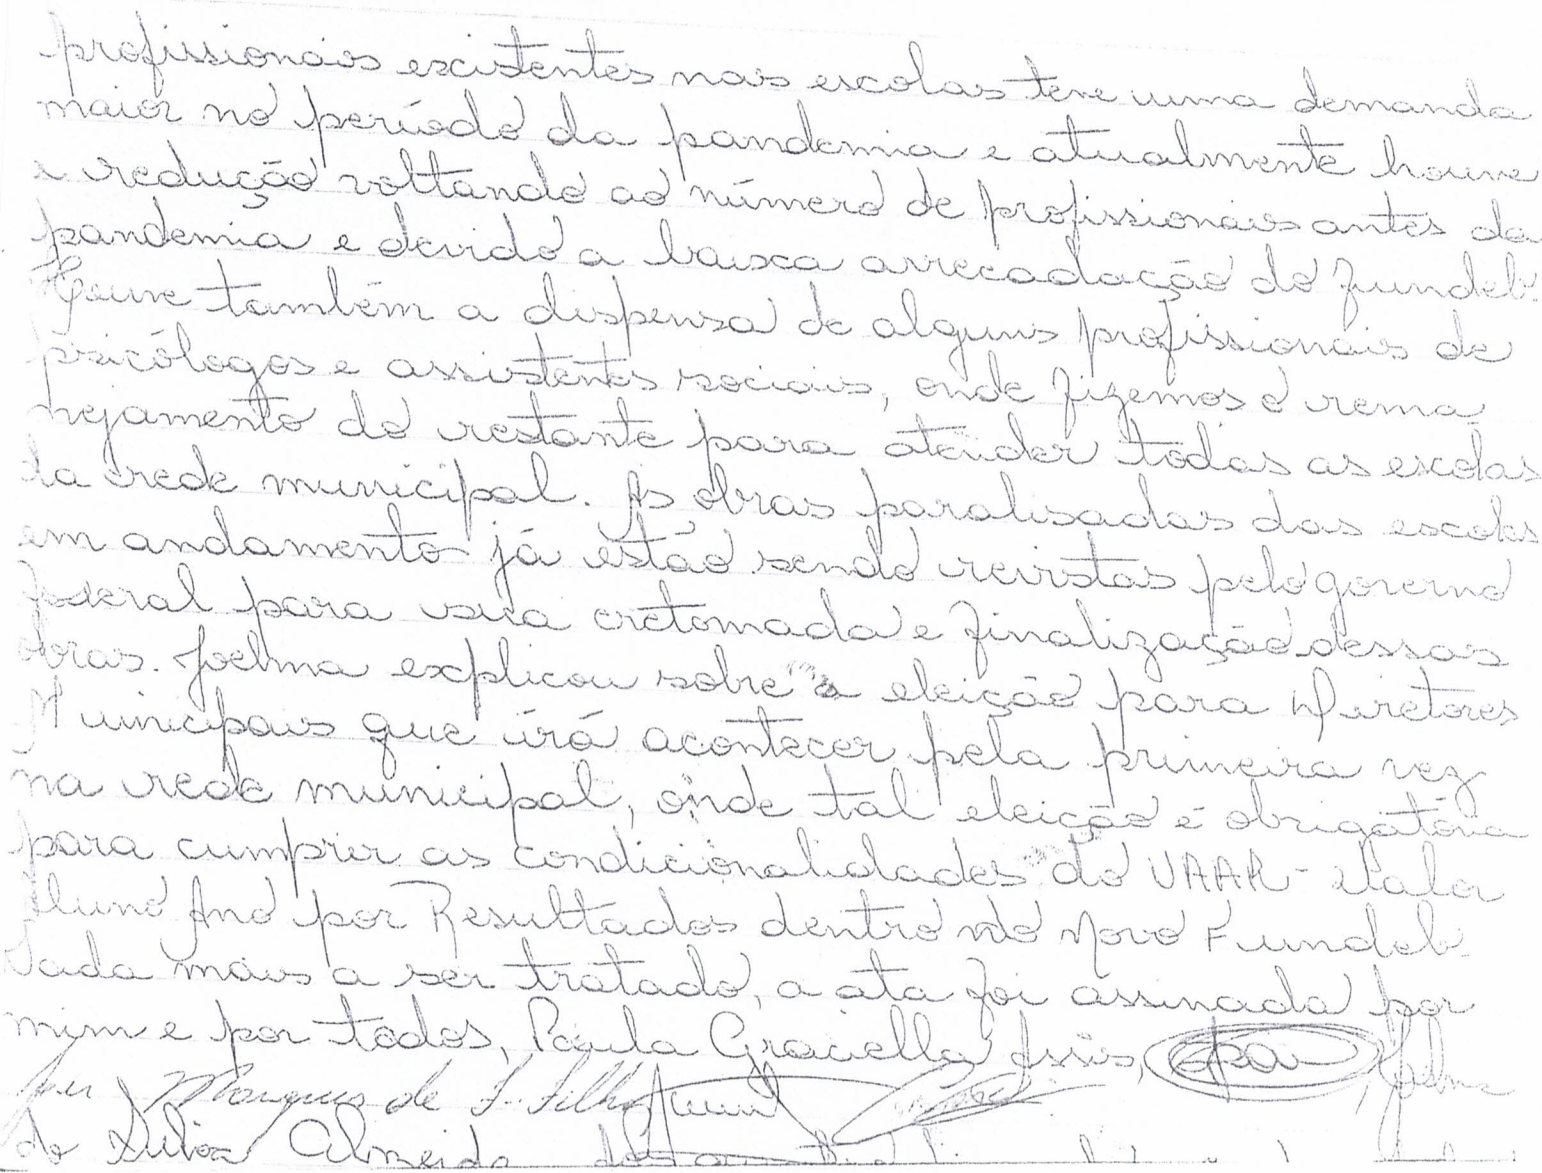 profissionais existentes nas escolas teve uma demanda
maior no período da pandemia e atualmente houve
a redução voltando ao número de profissionais antes da
pandemia e devido a baixa arrecadação do Fundeb.
Houve também a dispensa de alguns profissionais de
psicólogos e assistentes sociais, onde fizemos o rema
nejamento do restante para atender todas as escolas
da rede municipal. As obras paralisadas das escolas
em andamento já estão sendo revistas pelo governo
federal para sua retomada e finalização dessas
obras. Joelma explicou sobre a eleição para Diretores
Municipais que irá acontecer pela primeira vez
na rede municipal, onde tal eleição é obrigatória
para cumprir as condicionalidades do VAAR - Valor
Aluno Ano por Resultados dentro do Novo Fundeb.
Nada mais a ser tratado, a ata foi assinada por
mim e por todos, Paula Graciella Assis, Joelma
Marques de S. Filho
da Silva Almeida